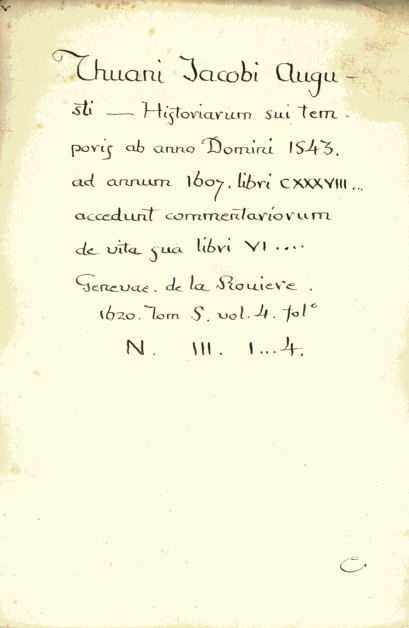 Thuani Jacobi Augu-
sti — Historiarum sui tem-
poris ab anno Domini 1543.
ad annum 1607. libri CXXXVIII...
accedunt commentariorum
de vita sua libri VI ....
Genevae. de la Rouiere.
1620. Tom 5. vol. 4. fol°
N. III. 1...4.
C